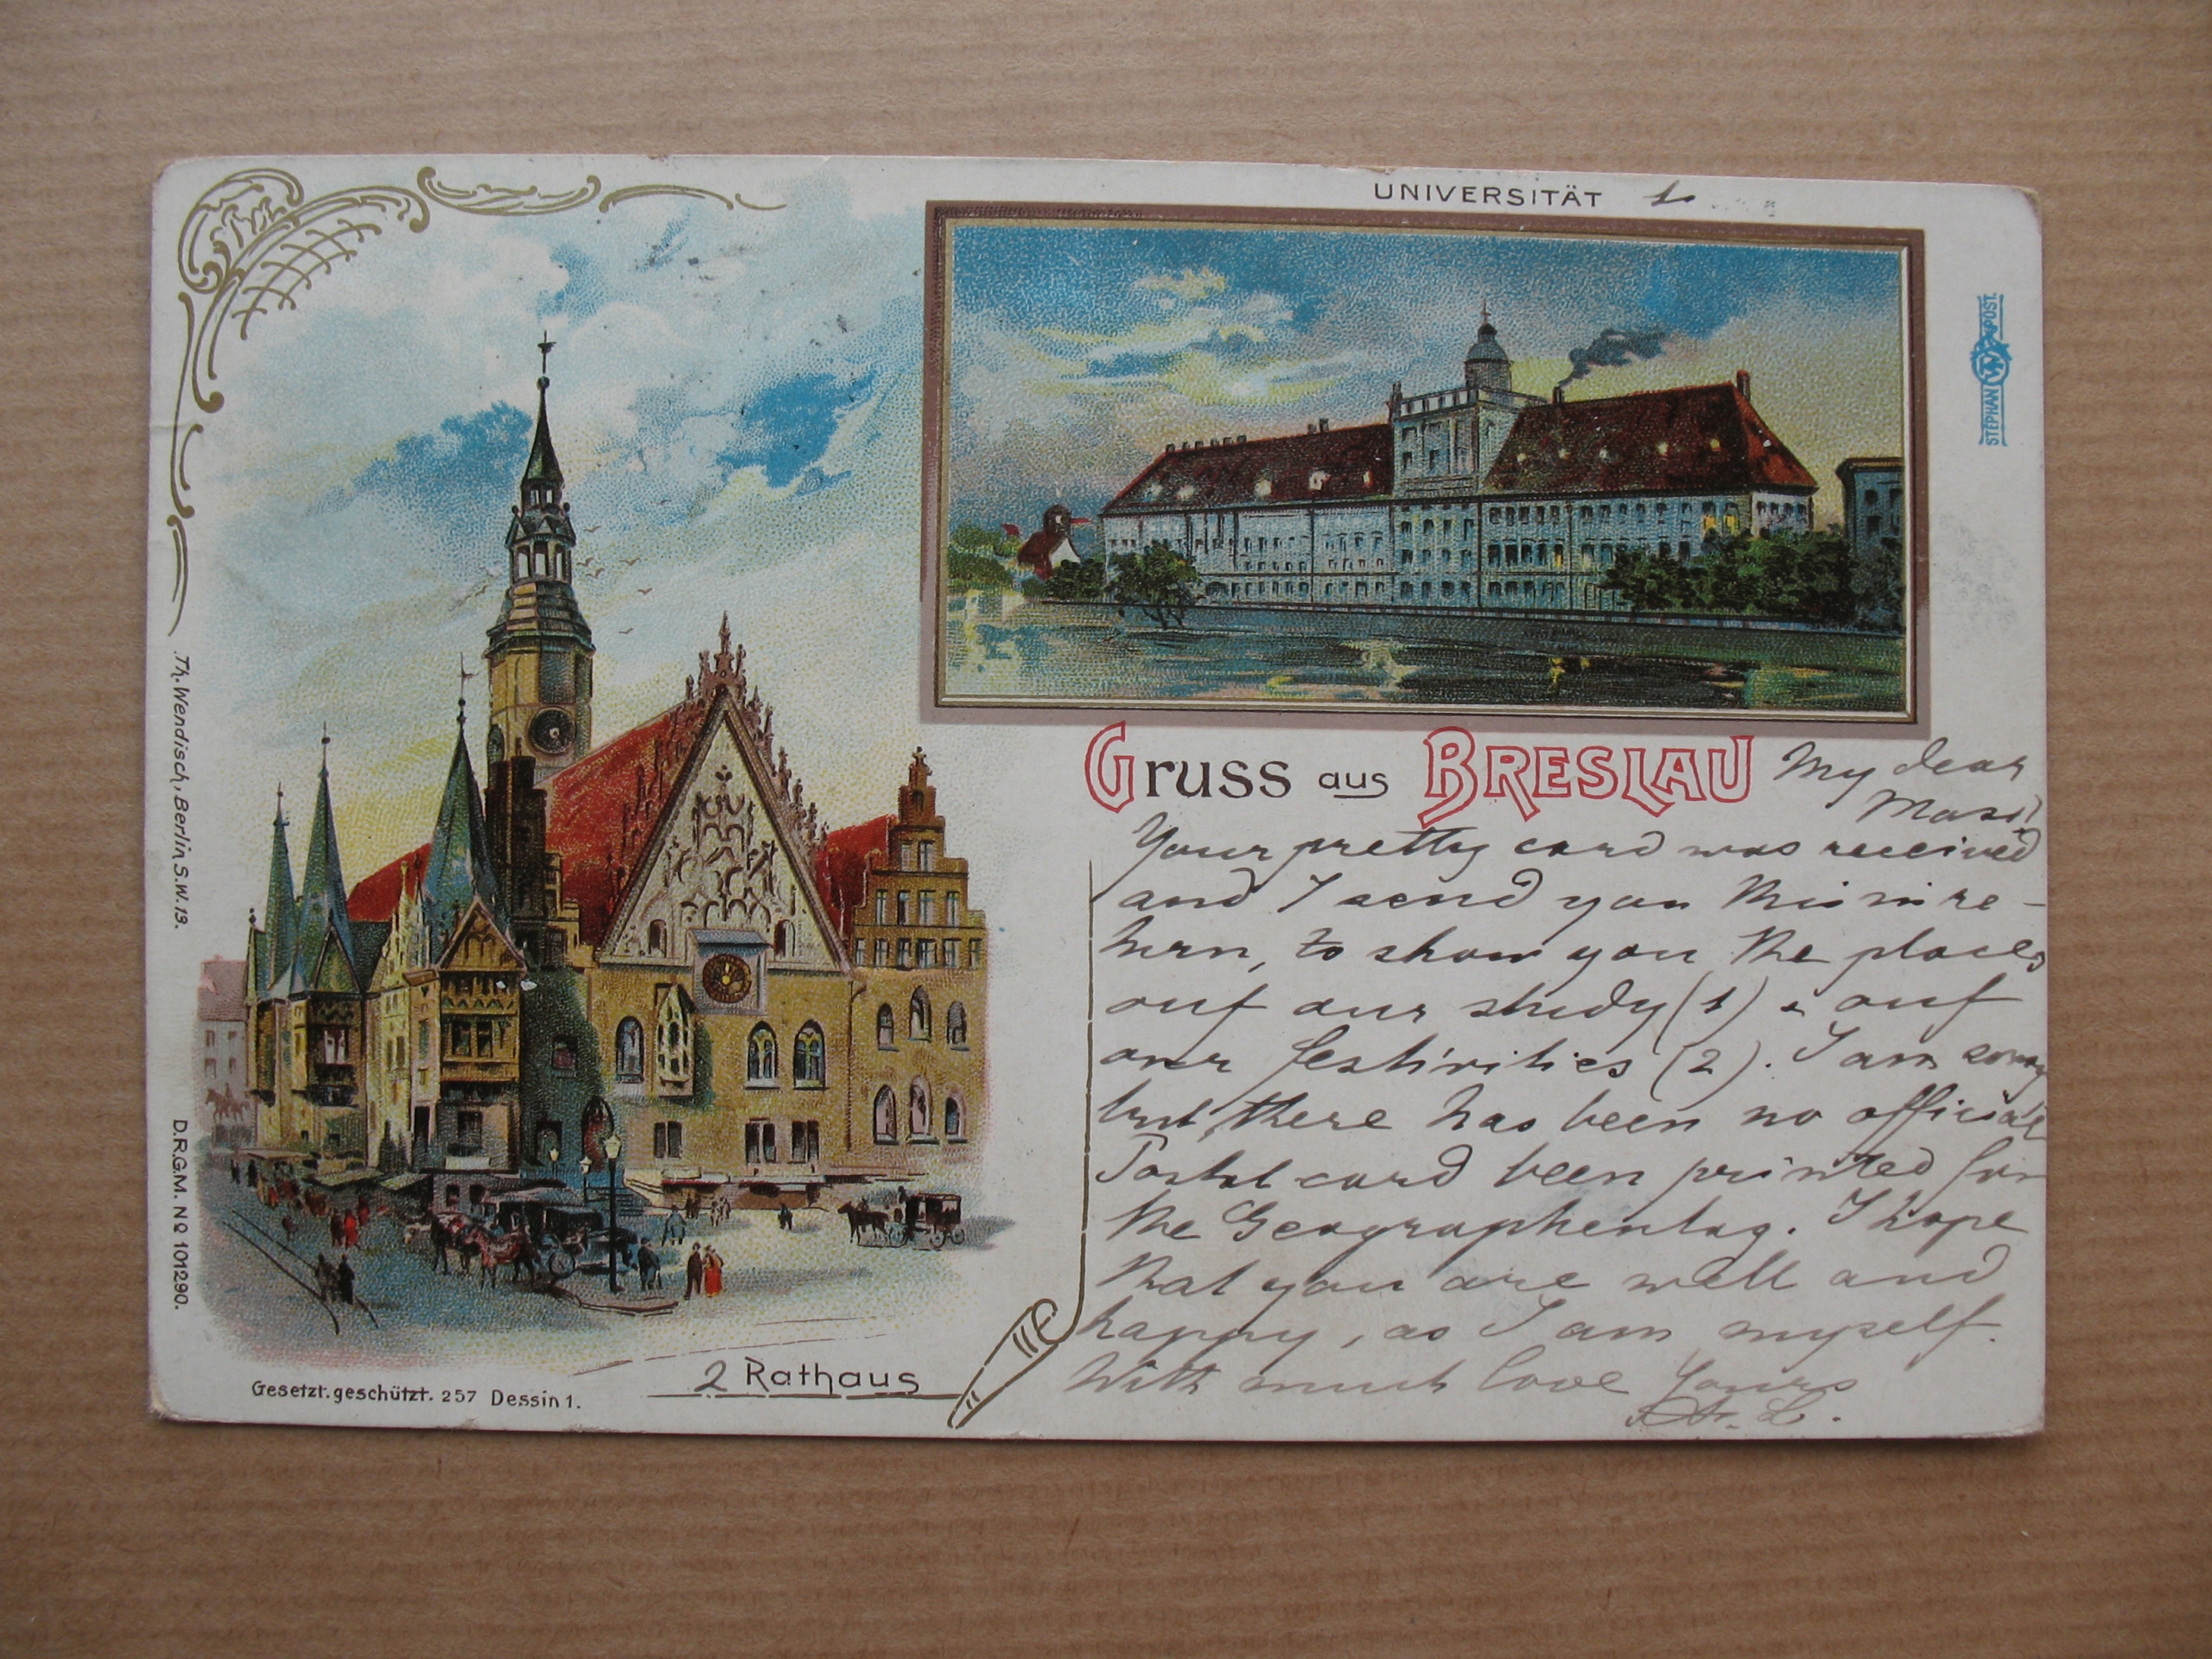 UNIVERSITÄT 1.
STEPHAN POST.
Gruss aus BRESLAU My dear
Your pretty card was received
and I send you this in re-
turn, to show you the places
ouf our study (1) & ouf
our festivities (2). I am sorry
but there has been no official
Postal card been printed for
the Geographentag. I hope
that you are well and
happy, as I am myself.
With much love Yours
L.
Th. Wendisch, Berlin S.W. 13.
D.R.G.M. No 101290.
Gesetzt. geschützt. 257 Dessin 1.
2 Rathaus